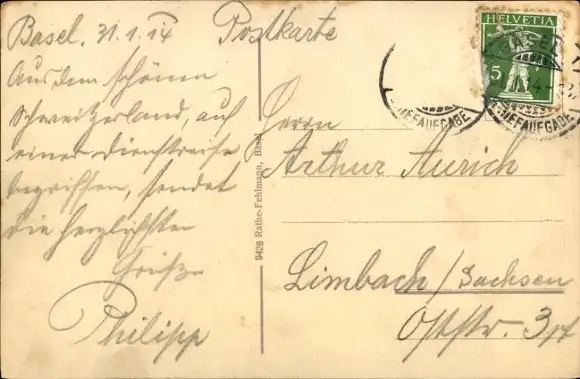 Basel. 31.1.14
Aus dem schönen
Schweitzerland, auf
einer Dienstreise
begriffen, sendet
die herzlichsten
Grüße
Philipp
Postkarte
Herrn
Arthur Aurich
Limbach/Sachsen
Oststr. 3
9428 Rathe-Fehlmann, Basel
HELVETIA
5
BASEL
BRIEFAUFGABE
BRIEFAUFGABE